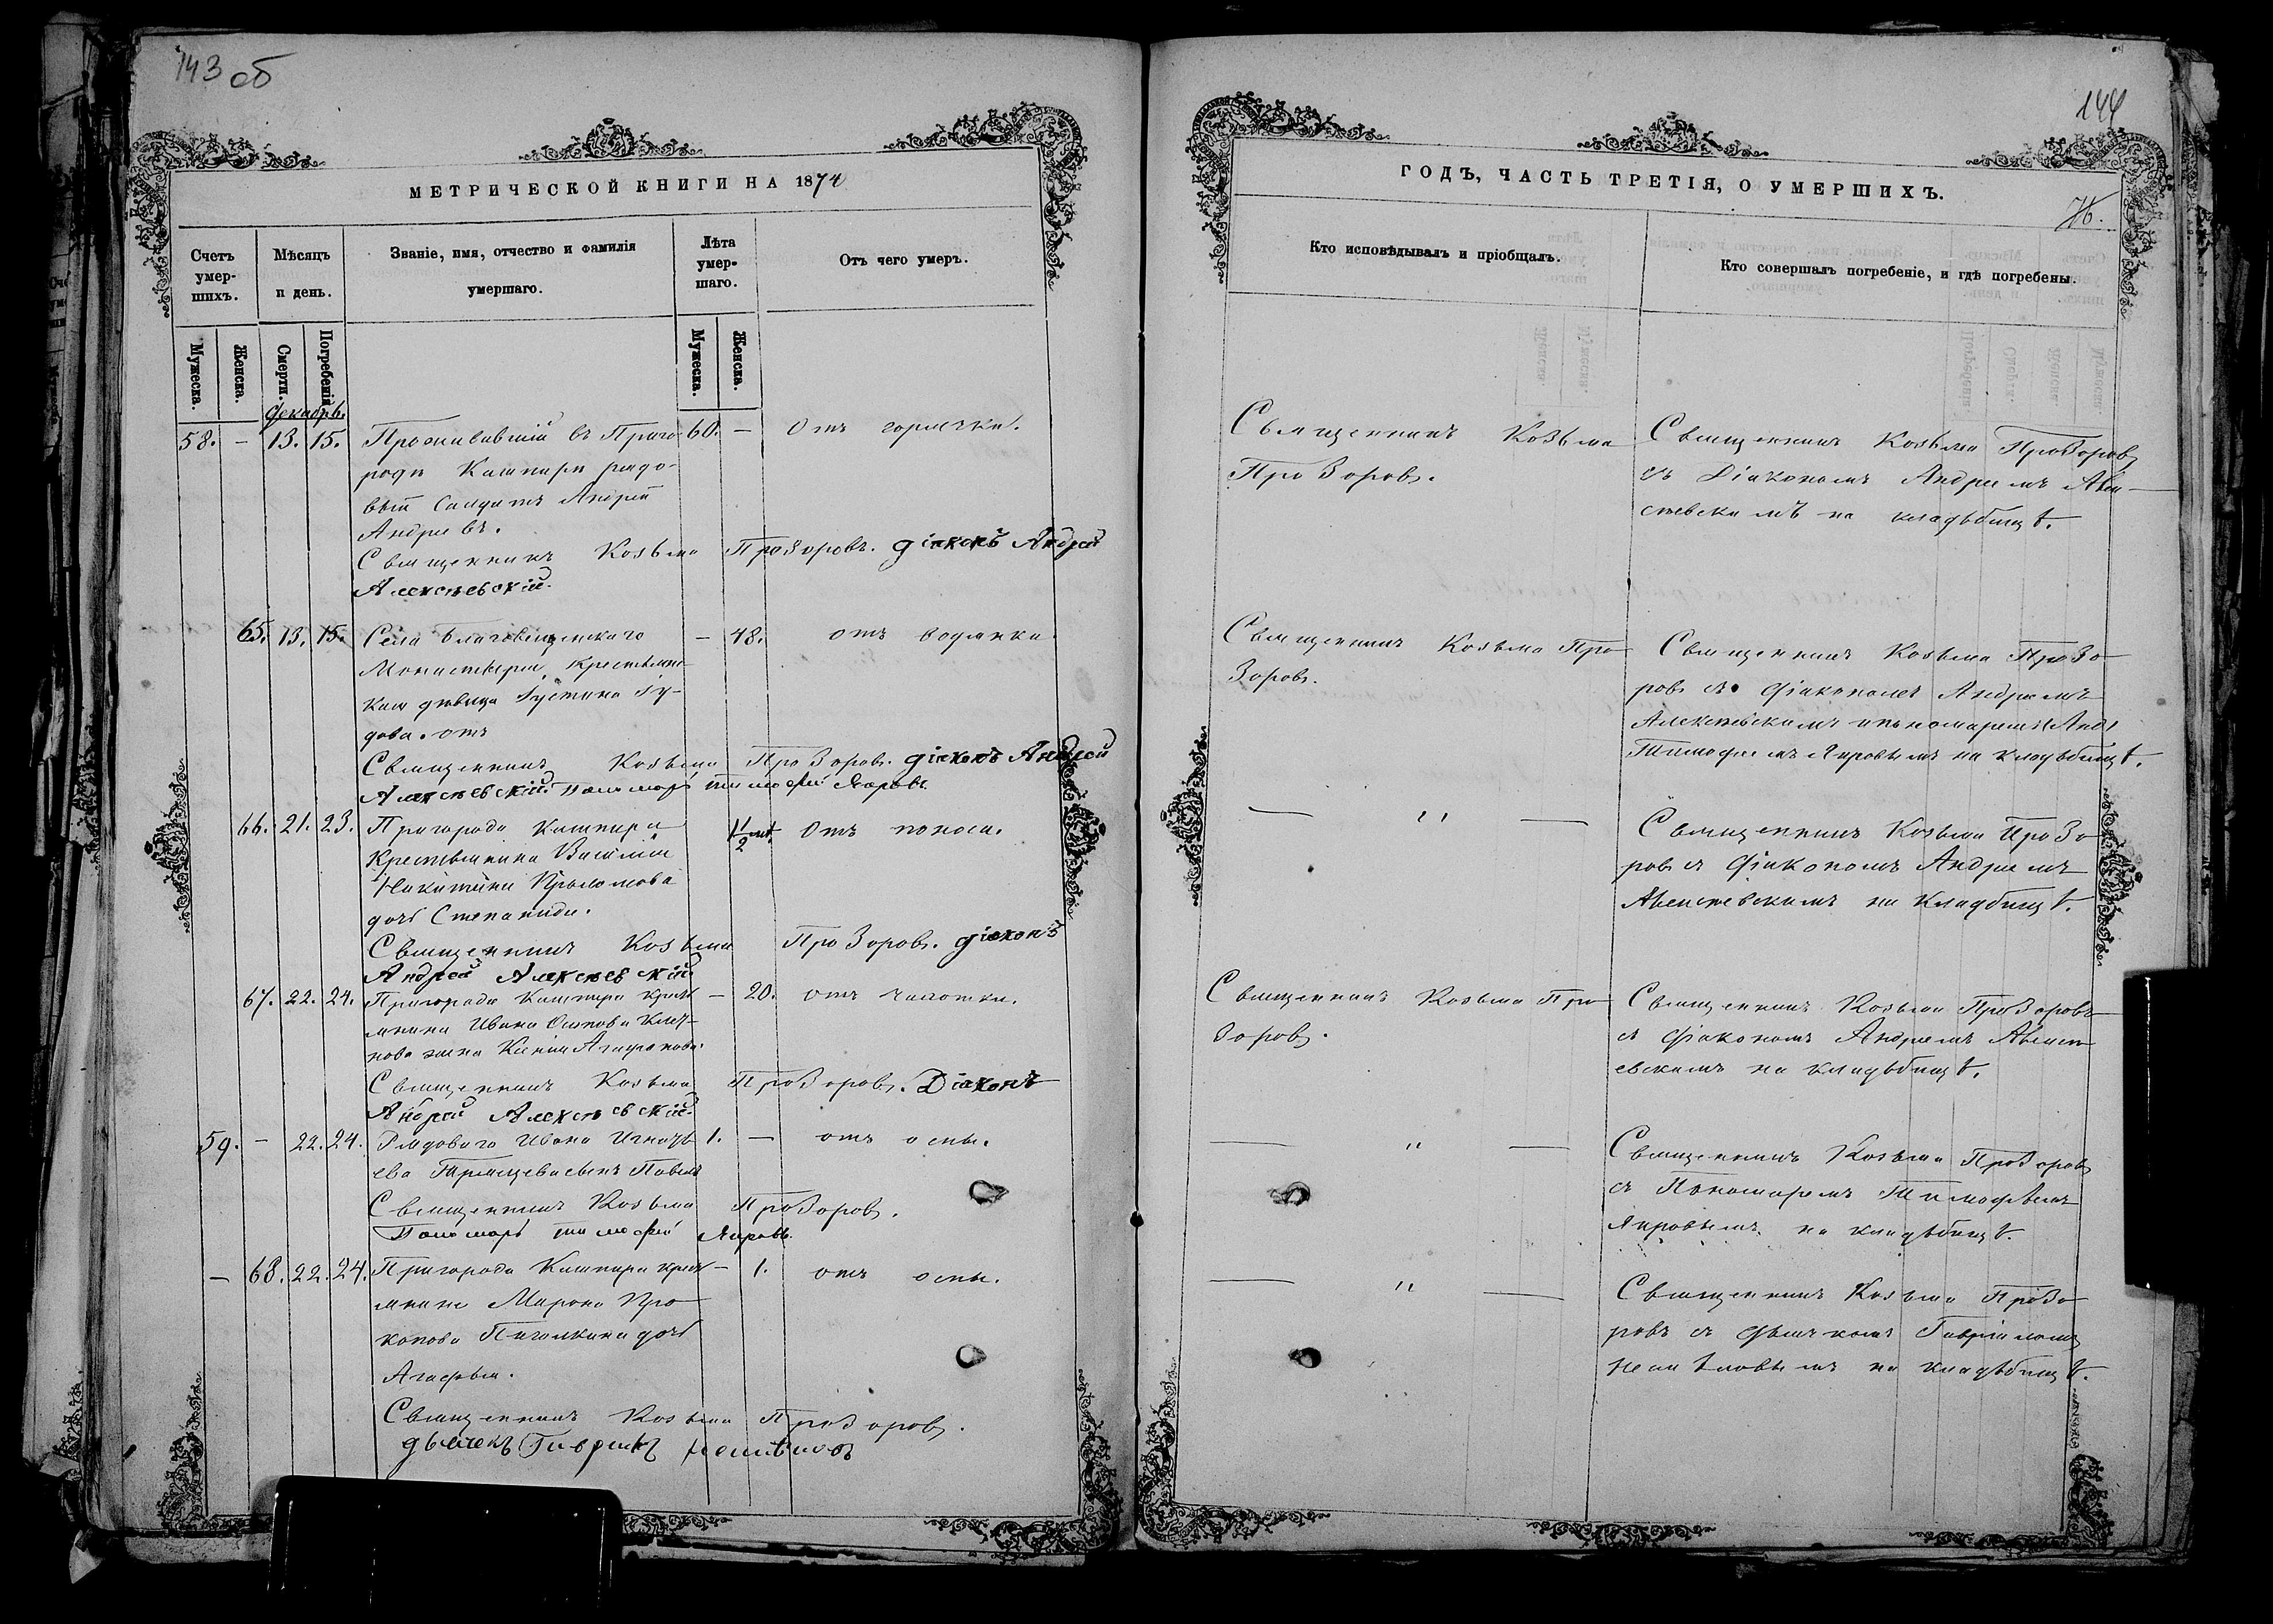 143 об
МЕТРИЧЕСКОЙ КНИГИ НА 1874
Счетъ умер-шихъ.
Мѣсяцъ и день.
Званіе, имя, отчество и фамилія умершаго.
Лѣта умер-шаго.
Отъ чего умеръ.
Мужеска.
Женска.
Смерти.
Погребенія.
Мужеска.
Женска.
Декабрь.
58. – 13. 15. Проживавшій въ Приго- 60. – Отъ горячки.
родѣ Кашпирѣ рядо-
вый Солдатъ Андрей
Андреевъ.
Священникъ Козьма Прозоровъ. діаконъ Андрей
Алексѣевскій.
65. 13. 15. Села Благовѣщенскаго – 48. отъ водянки.
Монастыря, крестьянс-
кая дѣвица Іустина
отъ
Священникъ Козьма Прозоровъ. діаконъ Андрей
Алексѣевскій. Пономарь тимофей Яировъ.
66. 21. 23. Пригорода Кашпира 1 1/2 Отъ поноса.
Крестьянина Василія
Никитина
дочь Степанида.
Священникъ Козьма Прозоровъ. діаконъ
Андрей Алексѣевскій
67. 22. 24. Пригорода Кашпира крест – 20. отъ чахотки.
янина Ивана Осипова
жена Ксенія Агафонова.
Священникъ Козьма Прозоровъ. Діаконъ
Андрей Алексѣевскій.
59. – 22. 24. Рядоваго Ивана Игнать 1. – отъ оспы.
ева сынъ Павелъ
Священникъ Козьма Прозоровъ.
Пономарь тимофей Яировъ.
– 68. 22. 24. Пригорода Кашпира крест – 1. отъ оспы.
янина Мирона Про
копова Пигалкина дочь
Агафья.
Священникъ Козьма Прозоровъ.
дьячекъ Гаврiилъ
144
ГОДЪ, ЧАСТЬ ТРЕТІЯ, О УМЕРШИХЪ.
Кто исповѣдывалъ и пріобщалъ.
Кто совершалъ погребеніе, и гдѣ погребены.
Священникъ Козьма
Прозоровъ.
Священникъ Козьма Прозоровъ
съ Діакономъ Андреемъ Алек
сѣевскимъ на кладбищѣ.
Священникъ Козьма Про
зоровъ.
Священникъ Козьма Прозо
ровъ съ діакономъ Андреемъ
Алексѣевскимъ и пономаремъ
Тимофеемъ Яировымъ на кладбищѣ.
— " —
Священникъ Козьма Прозо
ровъ съ діакономъ Андреемъ
Алексѣевскимъ на кладбищѣ.
Священникъ Козьма Про
зоровъ.
Священникъ Козьма Прозоровъ
съ діакономъ Андреемъ Алексѣ
евскимъ на кладбищѣ.
— " —
Священникъ Козьма Прозоровъ
съ Пономаремъ Тимофѣемъ
Яировымъ на кладбищѣ.
— " —
Священникъ Козьма Прозо
ровъ съ дьячкомъ Гавріиломъ
на кладбищѣ.